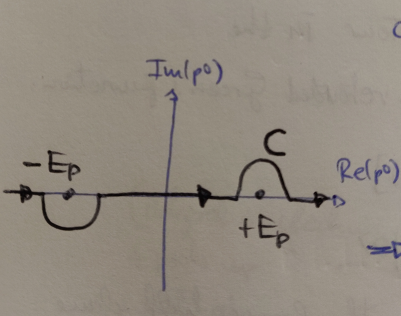 Im(p⁰)
-Ep
C
Re(p⁰)
+Ep
⇒